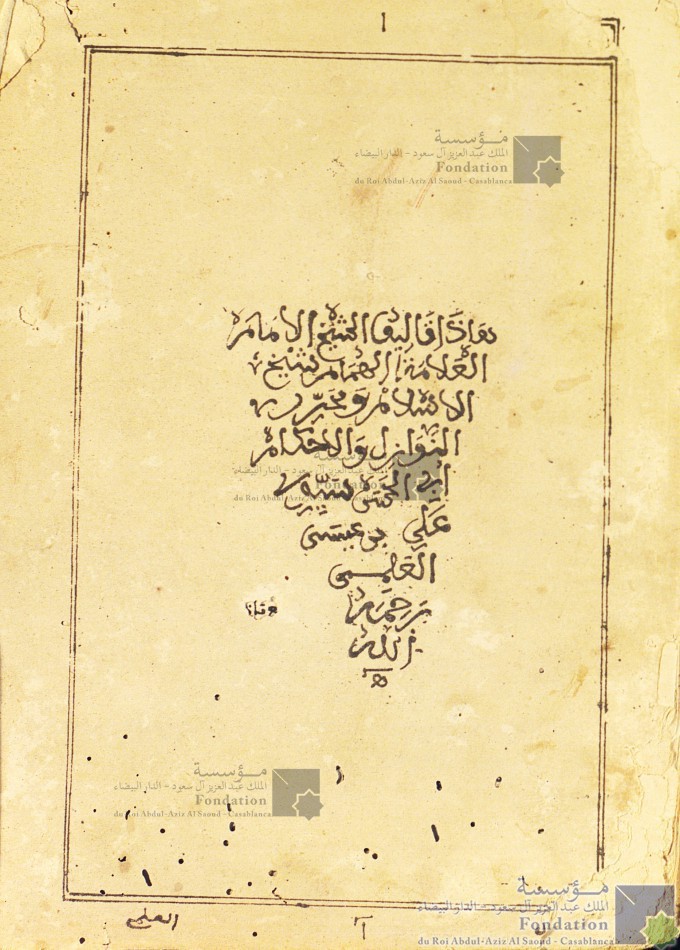 مؤسسة
الملك عبد العزيز آل سعود - الدار البيضاء
Fondation
du Roi Abdul-Aziz Al Saoud - Casablanca
هاذا تاليف الشيخ الامام
العلامة الهمام شيخ
الاسلام ومحرر
النوازل والاحكام
ابي الحسن سيدي
علي بن عيسى
العلمي
رحمه
الله
مؤسسة
الملك عبد العزيز آل سعود - الدار البيضاء
Fondation
du Roi Abdul-Aziz Al Saoud - Casablanca
مؤسسة
الملك عبد العزيز آل سعود - الدار البيضاء
Fondation
du Roi Abdul-Aziz Al Saoud - Casablanca
العلمي
مؤسسة
الملك عبد العزيز آل سعود - الدار البيضاء
Fondation
du Roi Abdul-Aziz Al Saoud - Casablanca